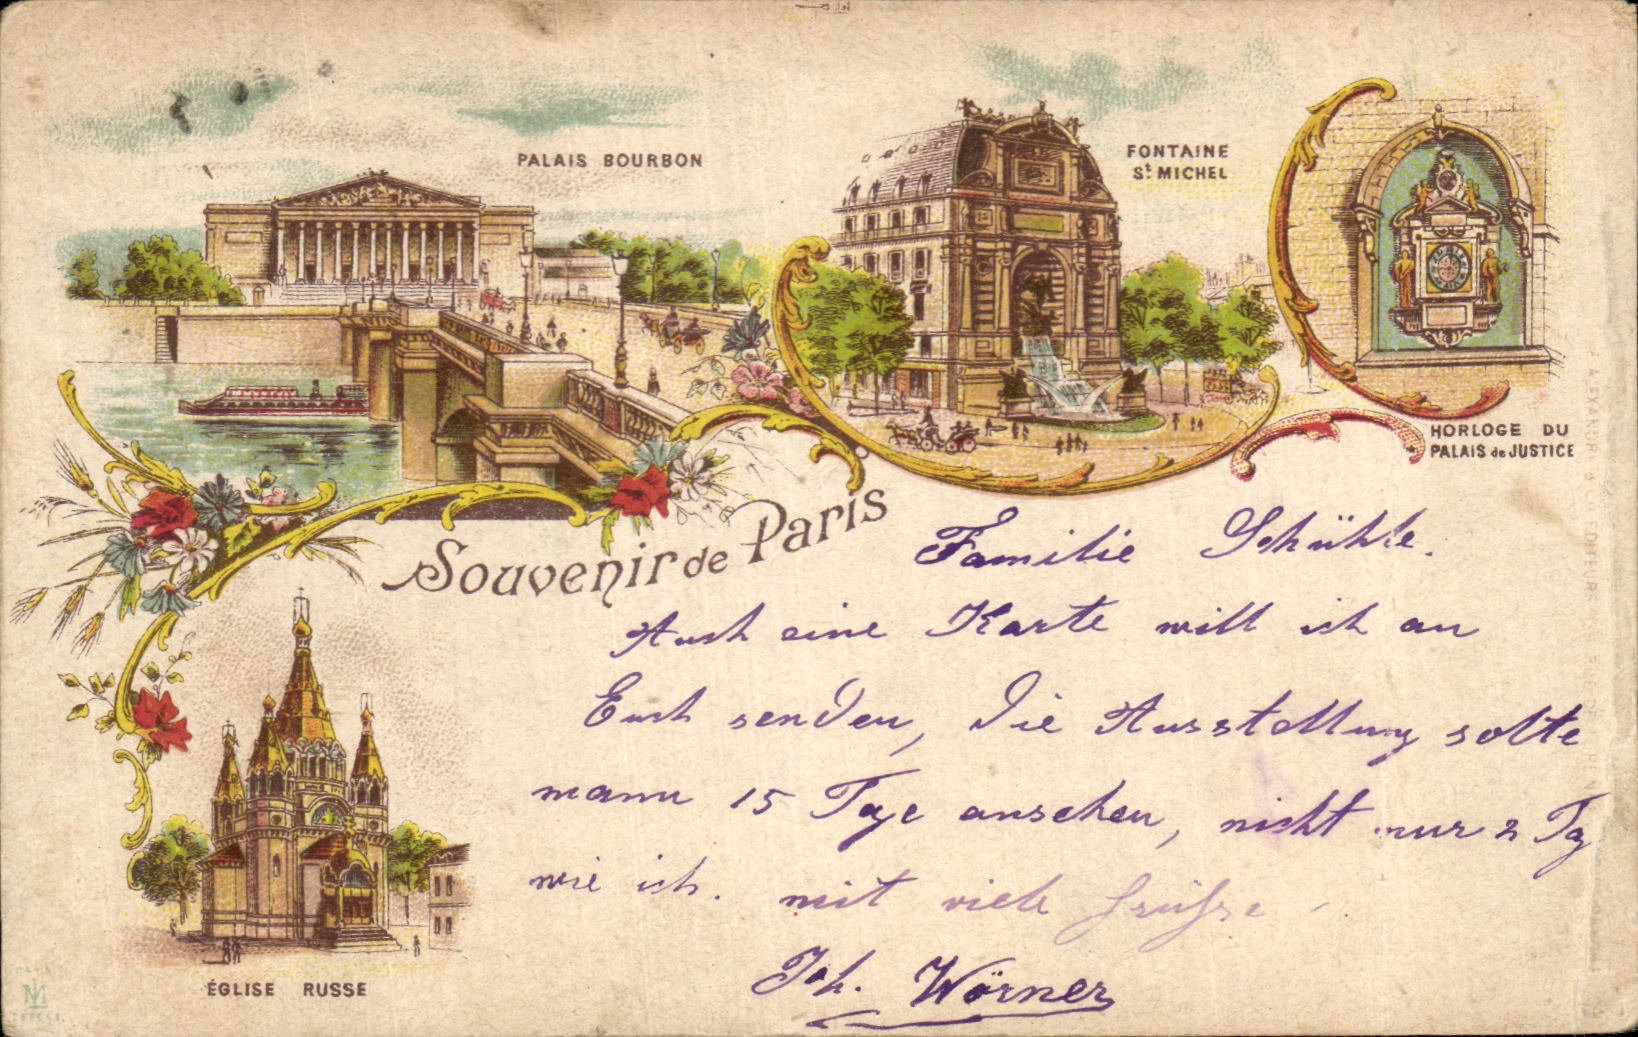 PALAIS BOURBON
FONTAINE
St MICHEL
HORLOGE DU
PALAIS de JUSTICE
Souvenir de Paris
ÉGLISE RUSSE
Familie Schühle.
Auch eine Karte will ich an
Euch senden, Die Ausstellung solte
mann 15 Tage anschen, nicht nur 2 Tg
wie ich. mit viele Grüsse
Joh. Wörner